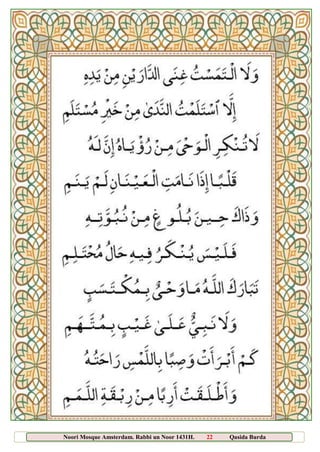 وَلَا الْتَمَسْتُ غِنَى الدَّارَيْنِ مِنْ يَدِهِ
إِلَّا ٱسْتَلَمْتُ النَّدَىٰ مِنْ خَيْرِ مُسْتَلَمِ
لَا تُنْكِرِ الْوَحْيَ مِنْ رُؤْيَاهُ إِنَّ لَهُ
قَلْبًا إِذَا نَامَتِ الْعَيْنَانِ لَمْ يَنَمِ
وَذَاكَ حِينَ بُلُوغٍ مِنْ نُبُوَّتِهِ
فَلَيْسَ يُنْكَرُ فِيهِ حَالُ مُحْتَلِمِ
تَبَارَكَ اللهُ مَا وَحْيٌ بِمُكْتَسَبٍ
وَلَا نَبِيٌّ عَلَى غَيْبٍ بِمُتَّهَمِ
كَمْ أَبْرَأَتْ وَصِبًا بِاللَّمْسِ رَاحَتُهُ
وَأَطْلَقَتْ أَرِبًا مِنْ رِبْقَةِ اللَّمَمِ
Noori Mosque Amsterdam. Rabbi un Noor 1431H. 22 Qasida Burda